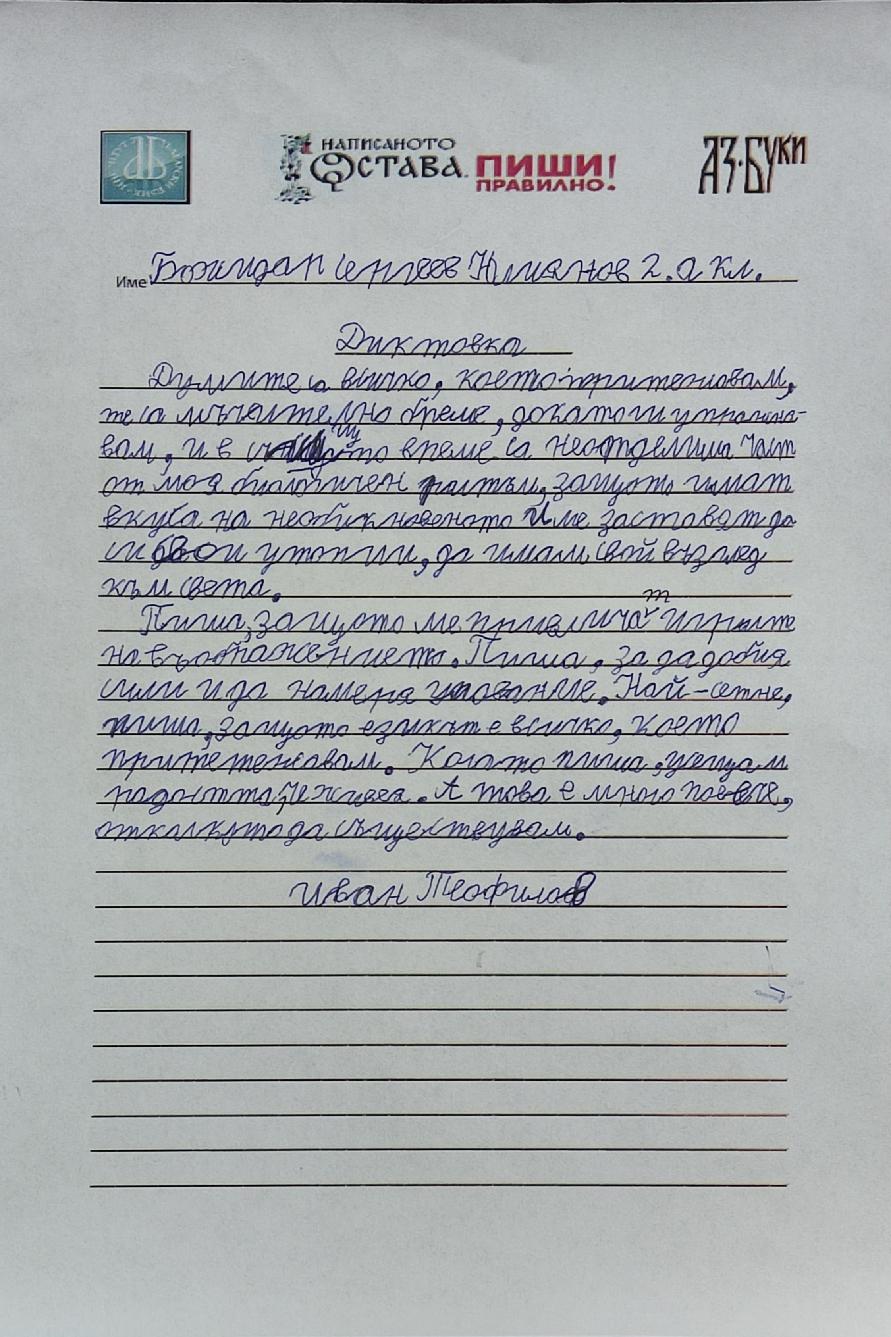 НАПИСАНОТО
ОСТАВА. ПИШИ
ПРАВИЛНО!
АЗ·БУКИ
Име Божидар Сергеев 2. а кл.
Диктовка
Думите са всичко, което притежавам,
те са мъчително бреме, докато ги упражня-
вам, и в същото време са неотделима част
от моя биологичен ритъм, защото имат
вкуса на необикновеното и ме заставят да
си боя утопии, да имам свой възглед
към света.
Пиша, защото ме привличат игрите
на въображението. Пиша, за да добия
сили и да намеря упование. Най-сетне,
пиша, защото езикът е всичко, което
притетежавам. Когато пиша, усещам
радостта, че живея. А това е много повече,
отколкото да съществувам.
Иван Теофилов